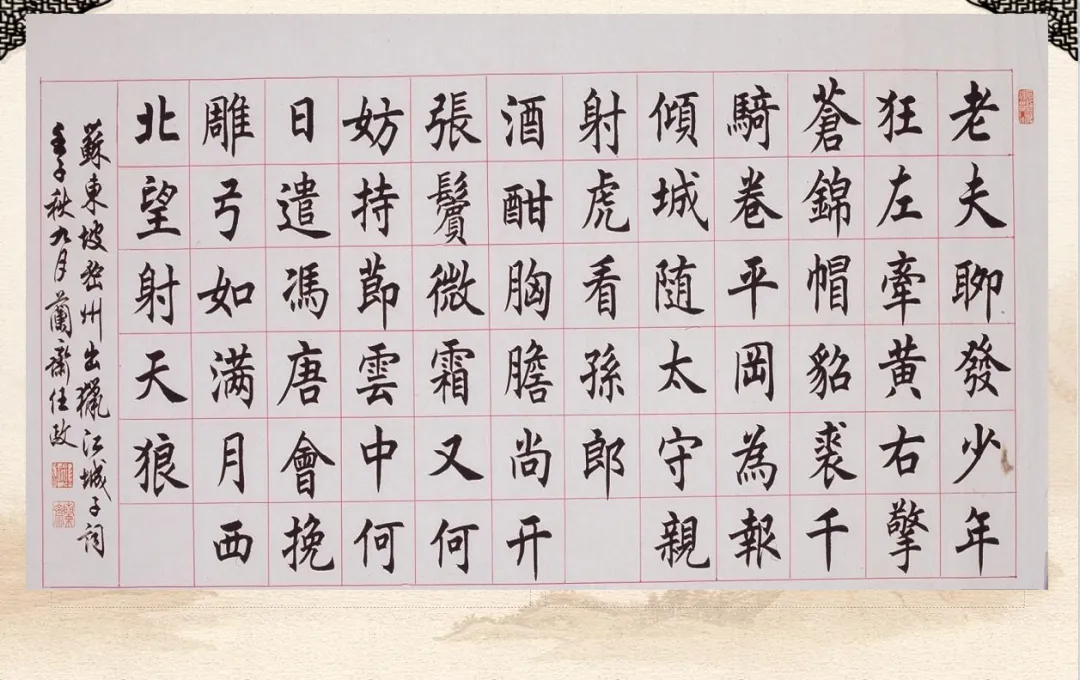 老夫聊發少年
狂左牽黄右擎
蒼錦帽貂裘千
騎卷平岡為報
傾城随太守親
射虎看孫郎
酒酣胸膽尚开
張鬢微霜又何
妨持節雲中何
日遣馮唐會挽
雕弓如满月西
北望射天狼
蘇東坡密州出獵江城子詞
壬子秋九月蘭齋任政